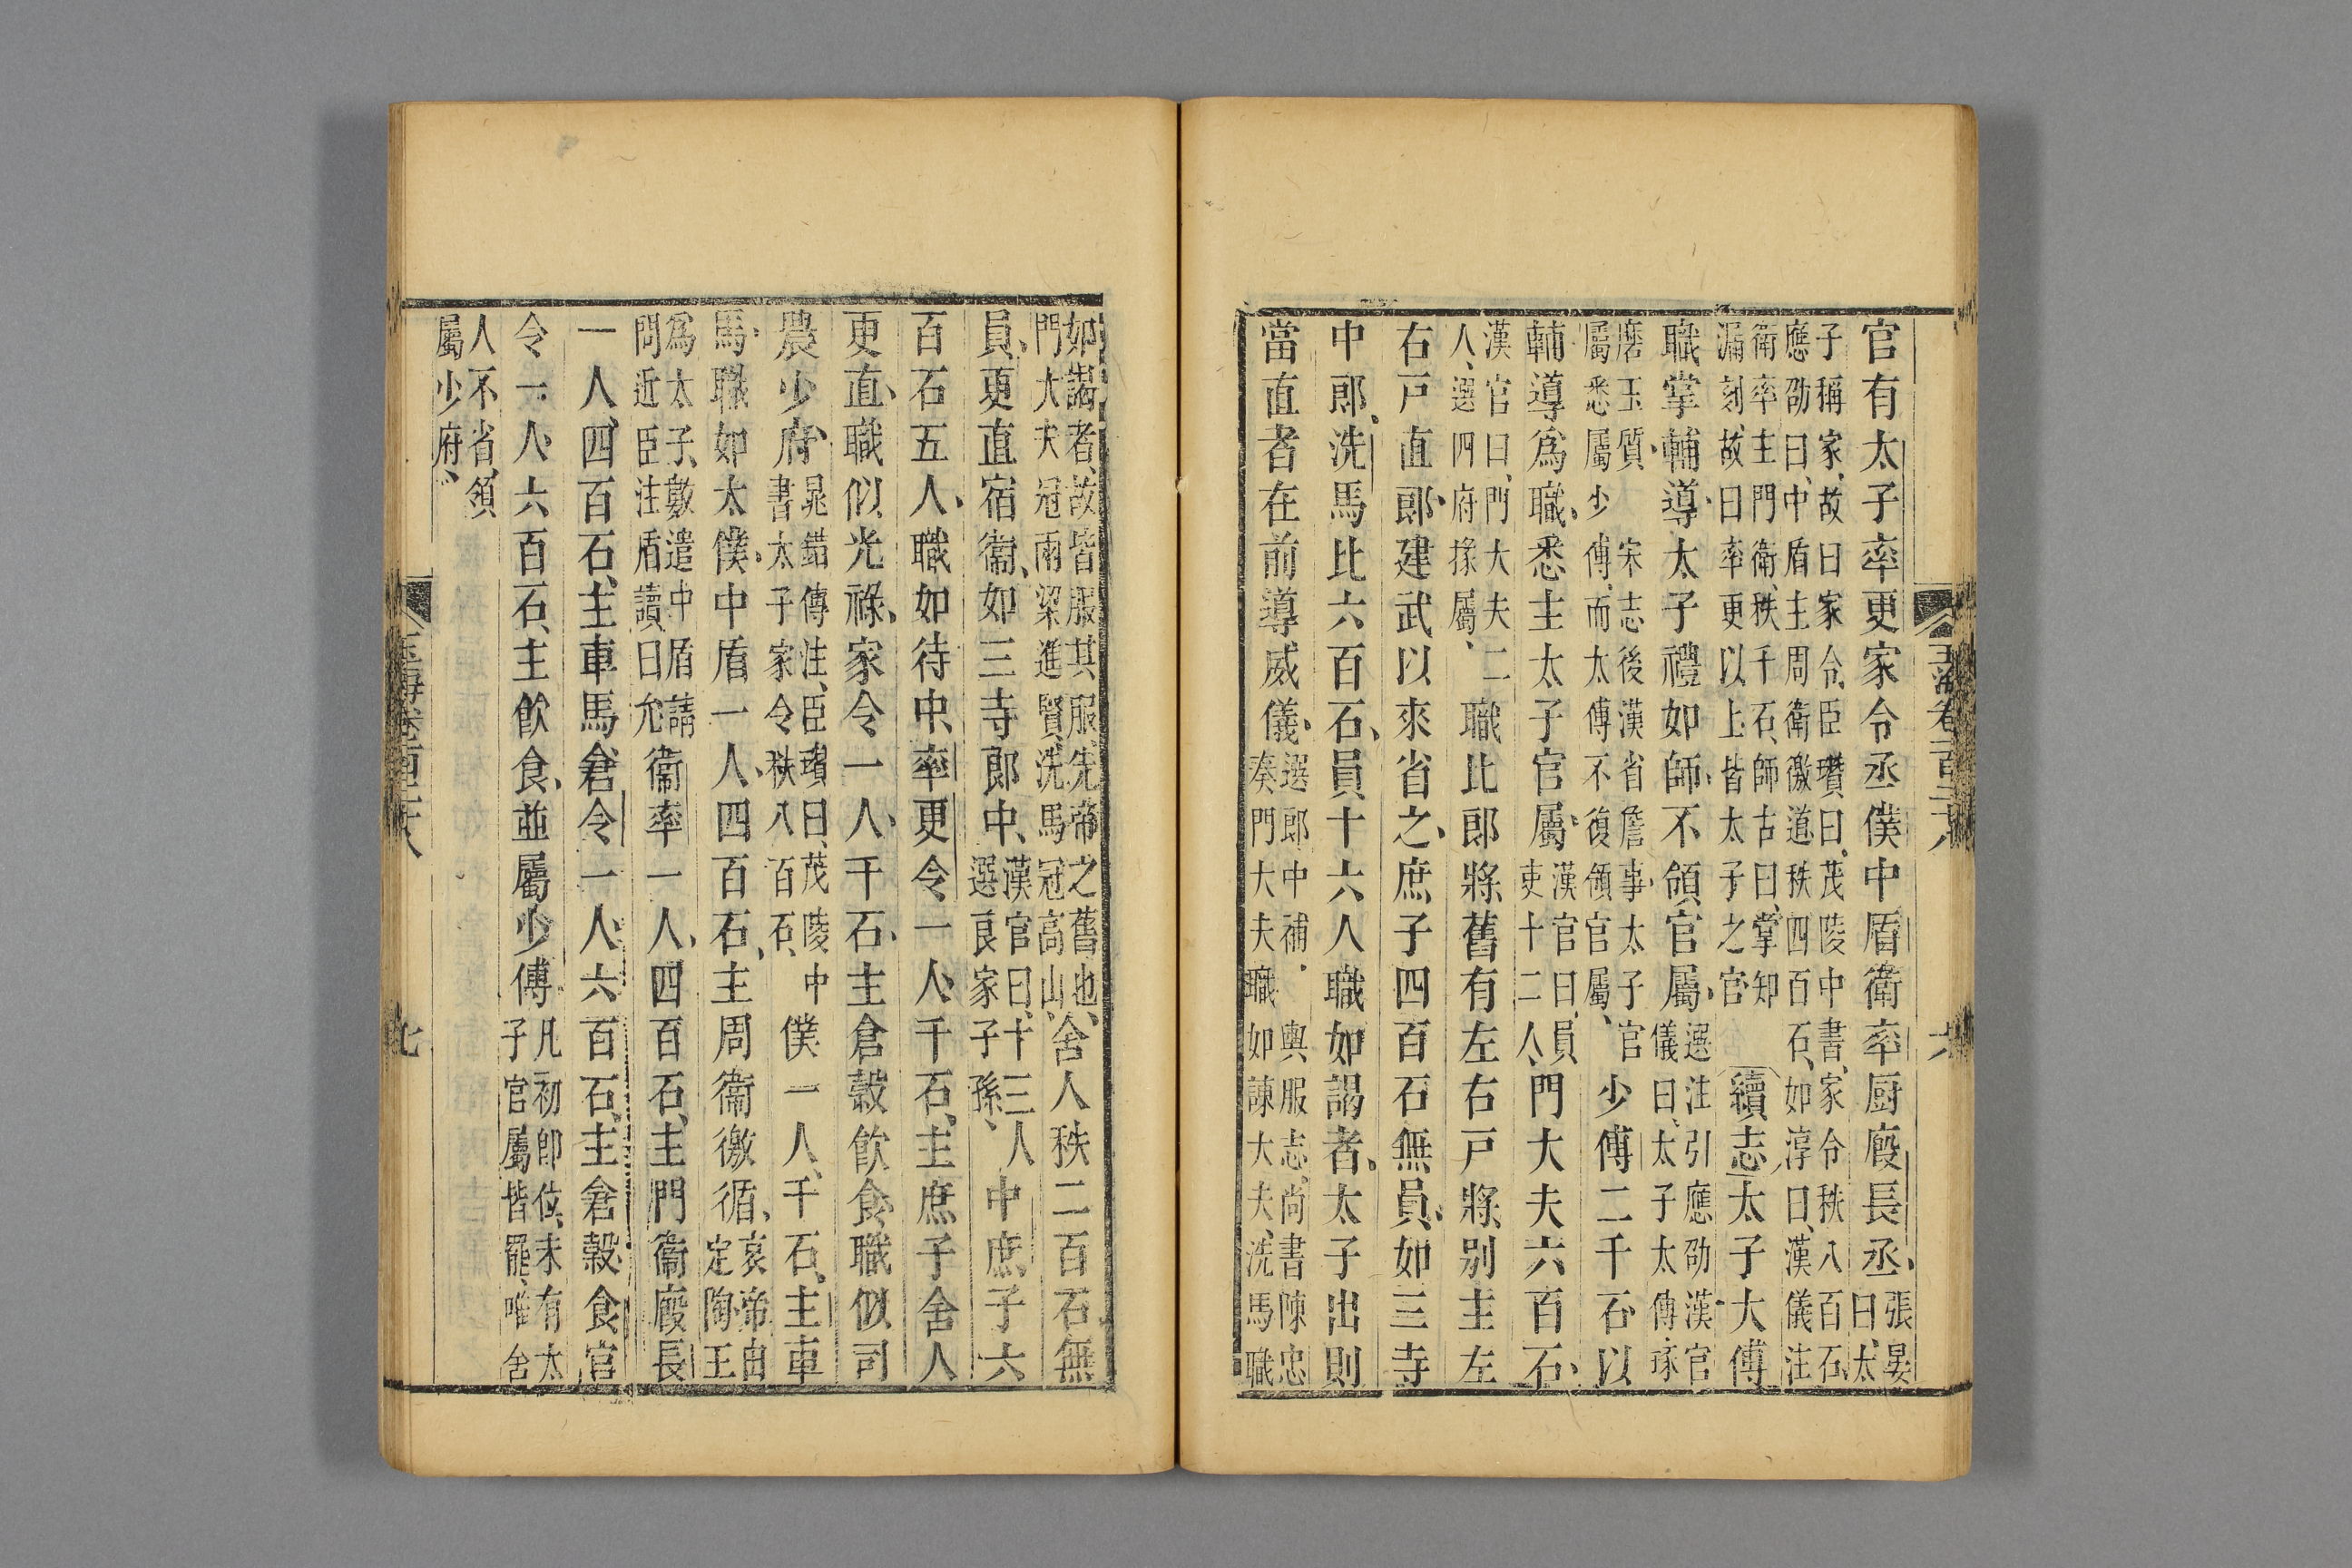 玉海卷一百二十八
六
官有太子率更家令丞僕中盾衛率厨廄長丞、張晏
曰、太
子稱家、故曰家令、臣瓚曰、茂陵中書、家令秩八百石、
應劭曰、中盾主周衛徼道秩四百石、如淳曰、漢儀注
衛率主門衛、秩千石、師古曰、掌知
漏刻、故曰率更、以上皆太子之官
續志太子大傅
職掌輔導太子禮如師、不領官屬、選注引應劭漢官
儀曰、太子太傅、琢
磨玉質、宋志後漢省詹事、太子官
屬悉屬少傅、而太傅不復領官屬、
少傅二千石以
輔導爲職、悉主太子官屬、漢官曰、員
吏十二人、
門大夫六百石、
漢官曰、門大夫二
人、選四府掾屬、
職比郎將舊有左右戸將、别主左
右戸直郎、建武以來省之、庶子四百石無員、如三寺
中郎、洗馬比六百石、員十六人職如謁者、太子出則
當直者在前導威儀、選郎中補、輿服志、尚書陳忠
奏門大夫職如諫大夫、洗馬職
如謁者、故皆服其服、先帝之舊也、
門大夫冠兩梁進賢、洗馬冠高山、
舍人秩二百石無
員、更直宿衛、如三寺郎中、漢官曰、十三人
選良家子孫、
中庶子六
百石五人、職如待中、率更令一人、千石、主庶子舍人
更直、職似光祿、家令一人、千石、主倉穀飲食、職似司
農少府、晁錯傳注、臣瓚曰、茂陵中
書太子家令秩八百石、
僕一人、千石、主車
馬、職如太僕、中盾一人、四百石、主周衛徼循、哀帝由
定陶王
爲太子、數遣中盾請
問近臣注盾讀曰允
衛率一人、四百石、主門衛廄長
一人、四百石、主車馬、倉令一人、六百石、主倉穀、食官
令一人、六百石、主飲食、並屬少傅、凡初卽位、未有太
子官屬皆罷、唯舍
人不省、領
屬少府、
玉海卷一百二十八
七